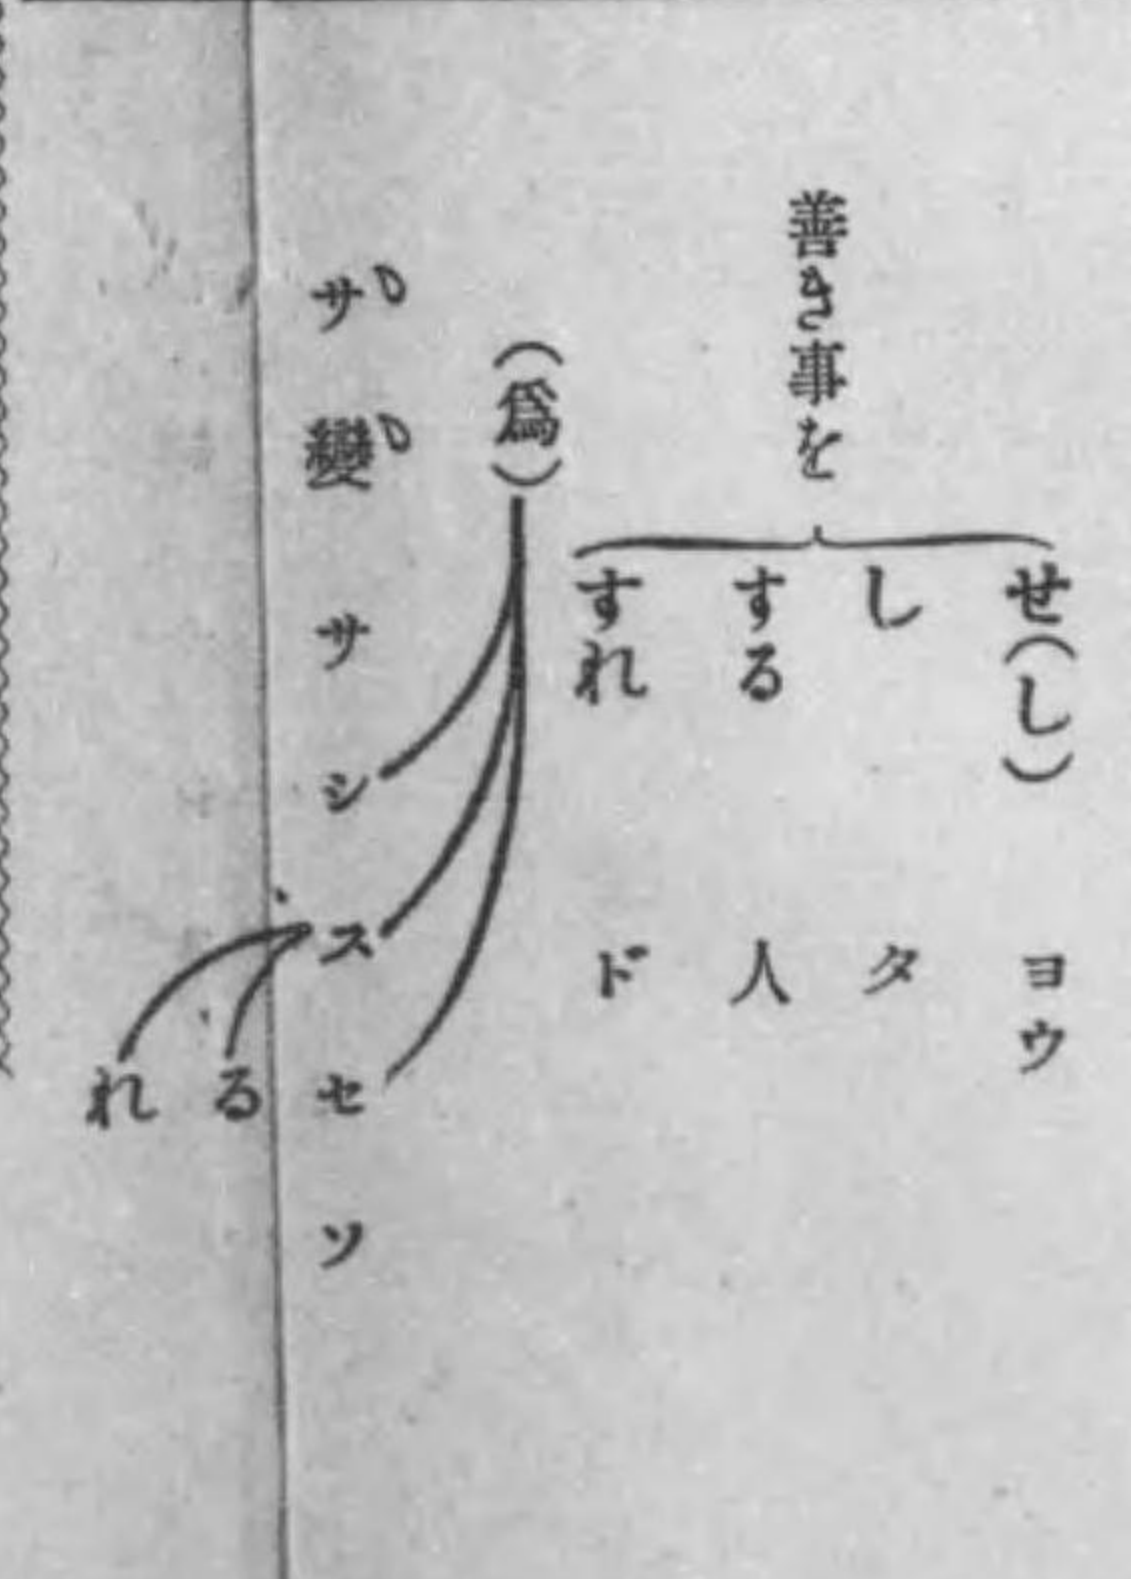 善き事を
せ(し) ヨウ
し タ
する 人
すれ ド
(爲)
サ變 サ シ ス セ ソ
る
れ